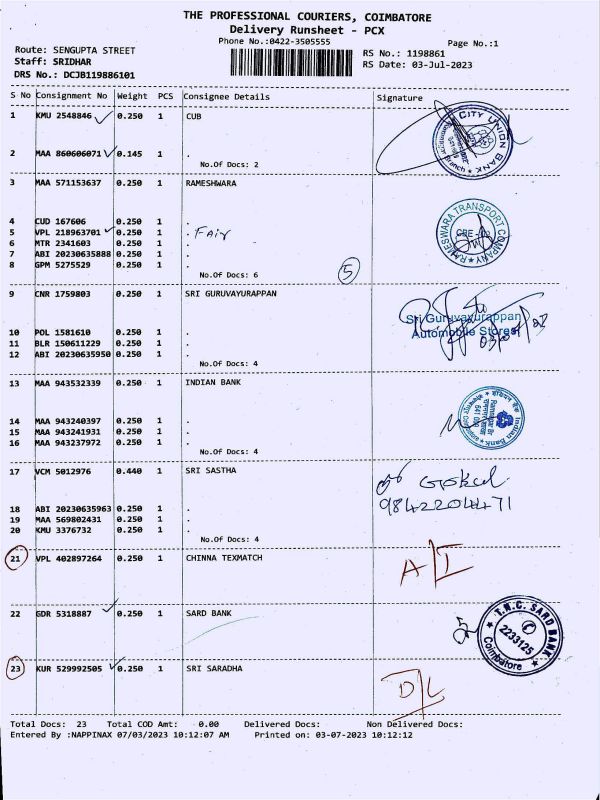 THE PROFESSIONAL COURIERS, COIMBATORE
Delivery Runsheet - PCX
Phone No.:0422-3505555
Page No.:1
Route: SENGUPTA STREET
Staff: SRIDHAR
DRS No.: DCJB119886101
RS No.: 1198861
RS Date: 03-Jul-2023
S No Consignment No Weight PCS Consignee Details Signature
1 KMU 2548846 0.250 1 CUB
CITY UNION BANK
2 MAA 860606071 0.145 1 .
No.Of Docs: 2
3 MAA 571153637 0.250 1 RAMESHWARA
RAMESWARA TRANSPORT COMPANY
4 CUD 167606 0.250 1 .
5 VPL 218963701 0.250 1 . Fair
6 MTR 2341603 0.250 1 .
7 ABI 20230635888 0.250 1 .
8 GPM 5275529 0.250 1 .
No.Of Docs: 6
5
9 CNR 1759803 0.250 1 SRI GURUVAYURAPPAN
Sri Guruvayurappan
Automobile Stores
10 POL 1581610 0.250 1 .
11 BLR 150611229 0.250 1 .
12 ABI 20230635950 0.250 1 .
No.Of Docs: 4
13 MAA 943532339 0.250 1 INDIAN BANK
Indian Bank
14 MAA 943240397 0.250 1 .
15 MAA 943241931 0.250 1 .
16 MAA 943237972 0.250 1 .
No.Of Docs: 4
17 VCM 5012976 0.440 1 SRI SASTHA
Gokul
9842204471
18 ABI 20230635963 0.250 1 .
19 MAA 569802431 0.250 1 .
20 KMU 3376732 0.250 1 .
No.Of Docs: 4
21 VPL 402897264 0.250 1 CHINNA TEXMATCH
A/I
22 GDR 5318887 0.250 1 SARD BANK
T.N.C. SARD BANK
2233125
Coimbatore
23 KUR 529992505 0.250 1 SRI SARADHA
D/L
Total Docs: 23 Total COD Amt: 0.00 Delivered Docs: Non Delivered Docs:
Entered By :NAPPINAX 07/03/2023 10:12:07 AM Printed on: 03-07-2023 10:12:12